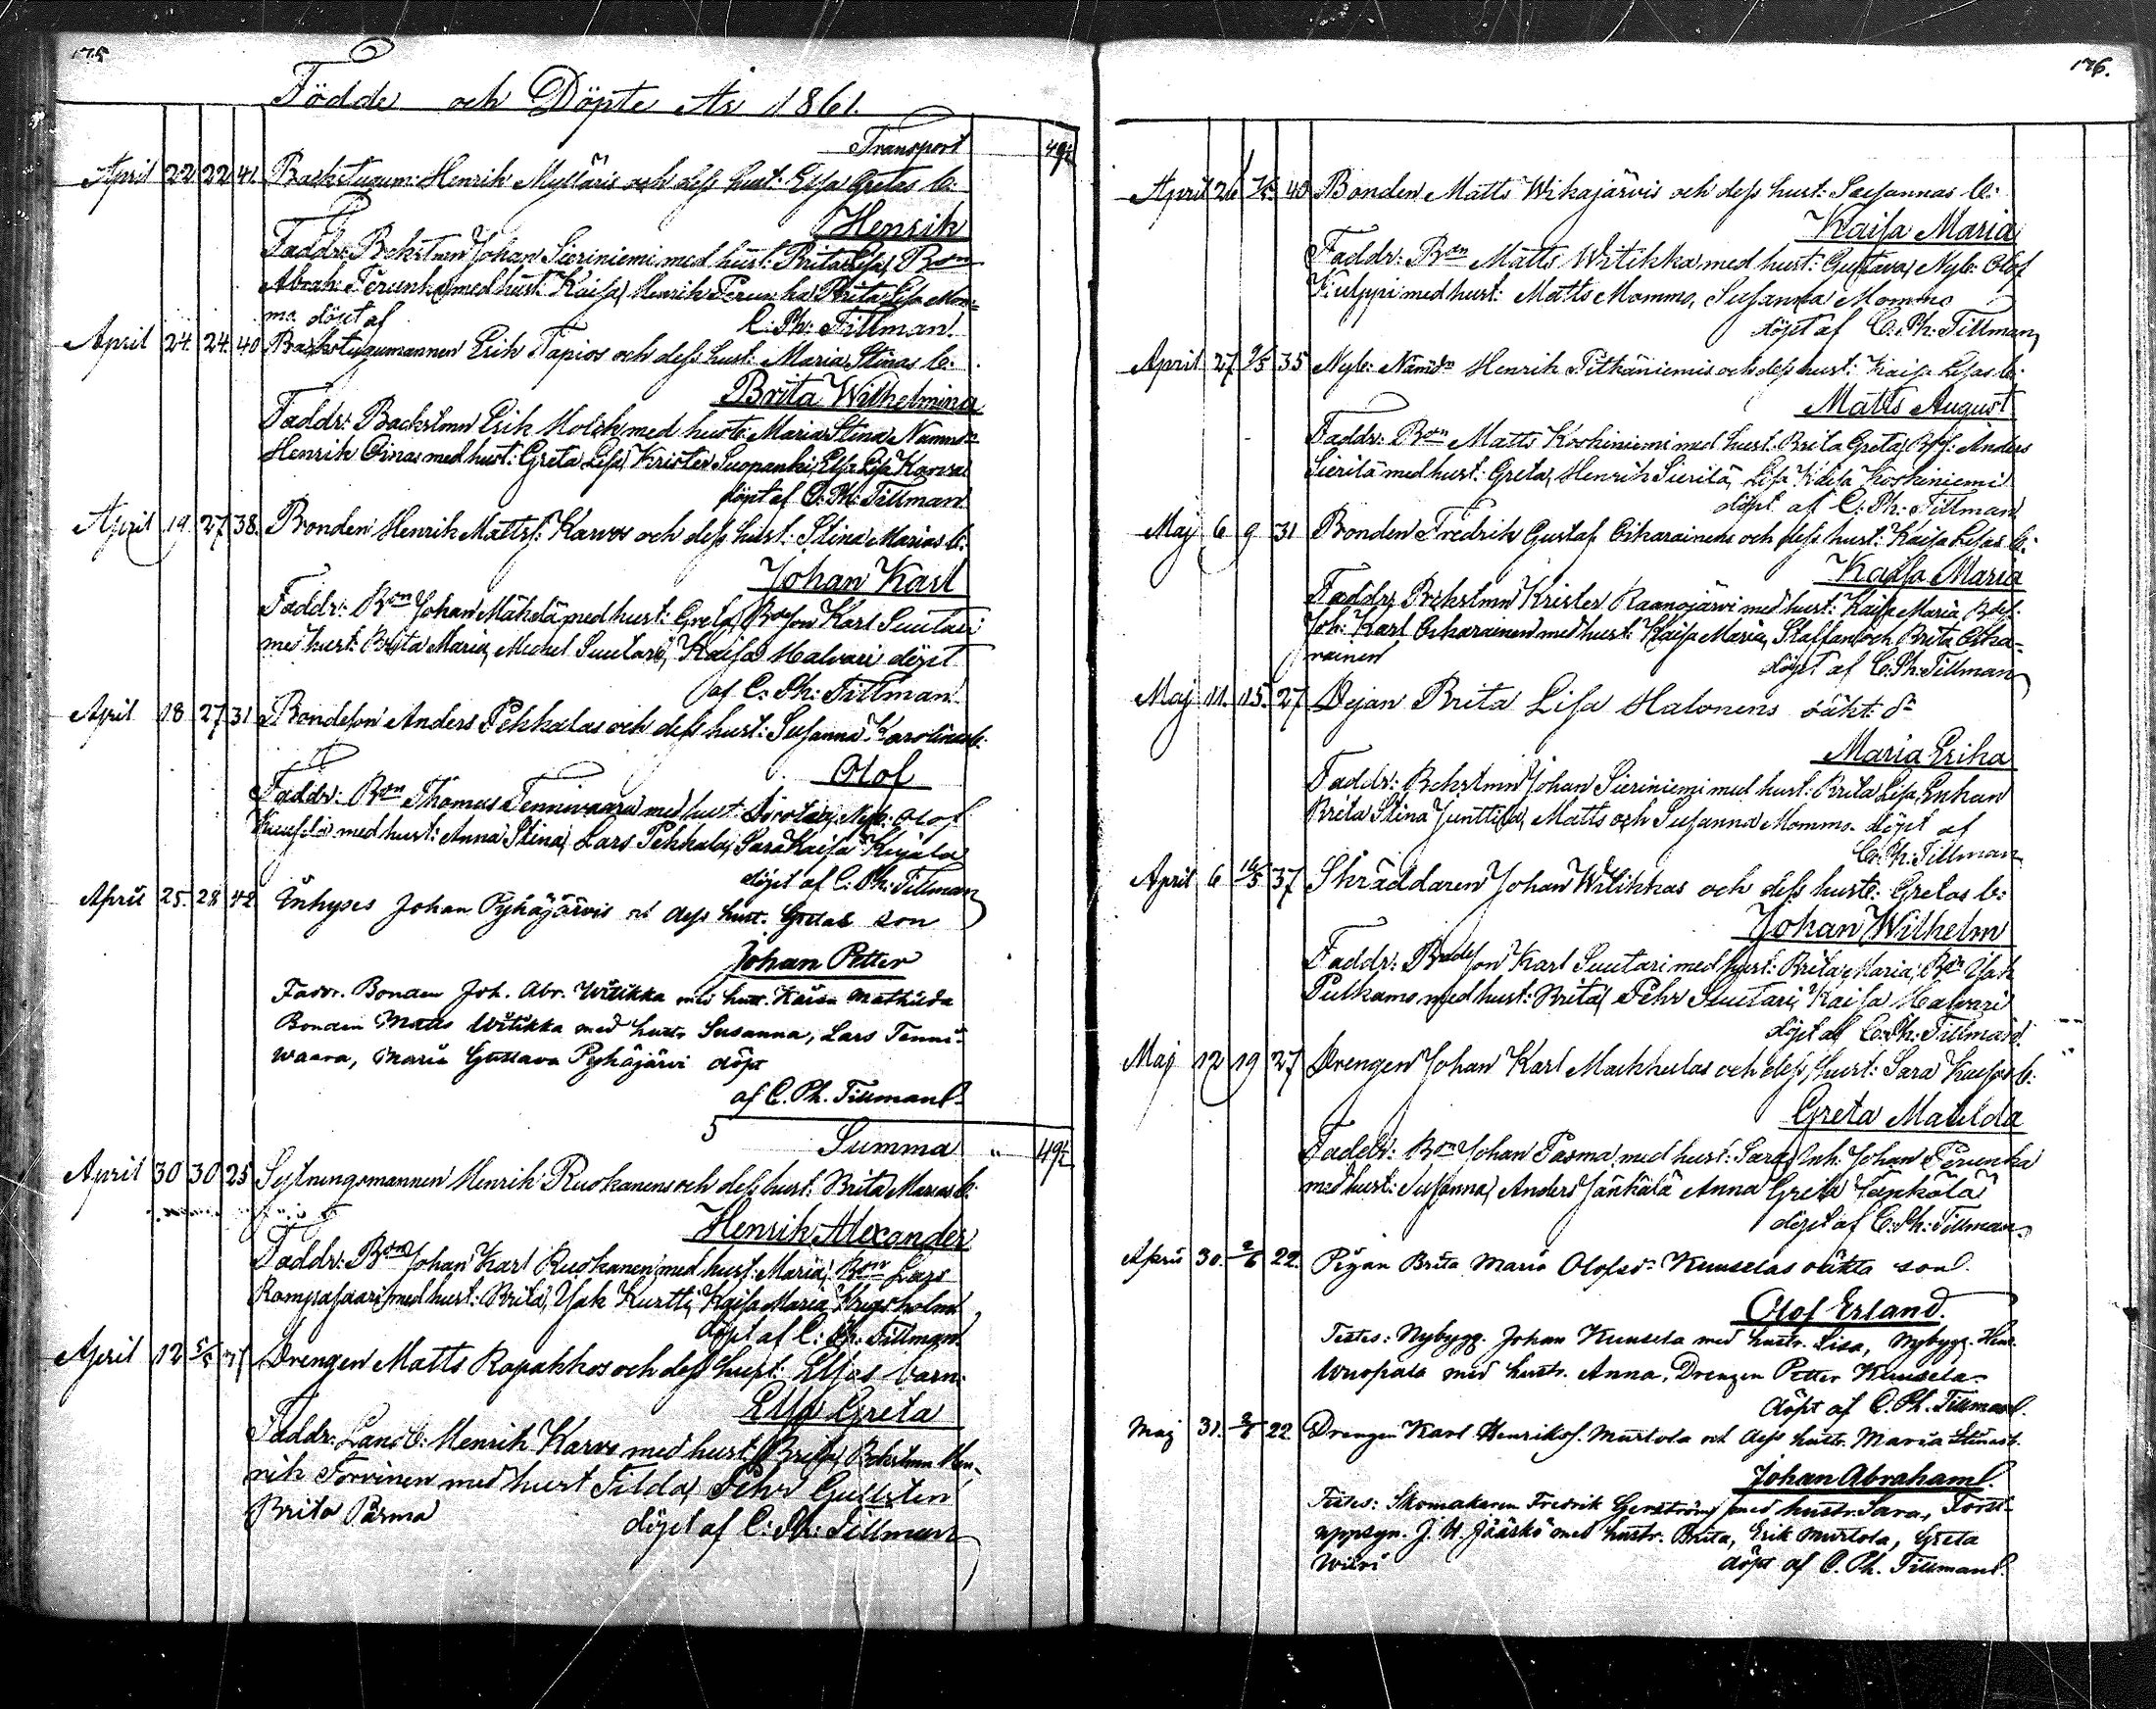 175
Födde och Döpte År 1861.
Transport 49½
April 22 22 41 Backstugum: Henrik Mylläris och dess hust: Elsa Gretas b:
Henrik
Faddr: Bckstmn Johan Sieriniemi med hust: Brita Lisa, Bon
Abrah: Perunka med hust: Kaisa, Henrik Perunka, Brita Lisa Mom=
mo döpt af C: Ph: Tillman
April 24. 24. 40 Backstugumannen Erik Tapios och dess hust: Maria Stinas b:
Brita Wilhelmina
Faddr: Backstmn Erik Holck med hust: Maria Stina, Nämndn
Henrik Oinas med hust: Greta Lisa, Krister Suopanki, Elsa Lisa
döpt af C: Ph: Tillman
April 19. 27. 38. Bonden Henrik Mattsf: Karvos och dess hust: Stina Marias b:
Johan Karl
Faddr: Bon Johan Mäkelä med hust: Greta, Bdeson Karl Suutari
med hust: Brita Maria, Michel Suutari, Kaisa Halvari döpt
af C: Ph: Tillman
April 18 27 31 Bondeson Anders Pekkalas och dess hust: Susanna Karolinas b:
Olof
Faddr: Bon Thomas Tennivaara med hust: Dorotea, Nyb: Olof
Kuusela med hust: Anna Stina, Lars Pekkala, Sara Kaisa Kujala
döpt af C: Ph: Tillman
April 25. 28 42 Inhyses Johan Pyhäjärvis och dess hust. Gretas son
Johan Petter
Faddr. Bonden Joh. Abr. Witikka med hust. Kaisa Mathilda
Bonden Matts Witikka med hustr Susanna, Lars Tenni-
waara, Maria Gustava Pyhäjärvi döpt
af C. Ph. Tillman
5
Summa " 49½
April 30 30 25 Sytningsmannen Henrik Ruokanens och dess hust: Brita Marias b:
Henrik Alexander
Faddr: Bon Johan Karl Ruokanen med hust: Maria, Bon Lars
Rompasaari med hust: Brita, Jak Kurtti, Kaisa Maria
döpt af C: Ph: Tillman
April 12 5/5 Drengen Matts Rapakkos och dess hust: Elsas barn
Elsa Greta
Faddr: Landb: Henrik Karvo med hust: Brita, Bckstmn Hen-
rik Torvinen med hust Tilda, Pehr Gullsten
Brita Parma döpt af C: Ph: Tillman
176.
April 26 1/5 40 Bonden Matts Wikajärvis och dess hust: Susannas b:
Kaisa Maria
Faddr: Bon Matts Witikka med hust: Gustava, Nyb: Olof
Kulppi med hust: Matts Mommo, Susanna Mommo
döpt af C: Ph: Tillman
April 27 9/5 35 Nyb: Nämdn Henrik Pitkäniemis och dess hust: Kaisa Lisas b:
Matts August
Faddr: Bon Matts Koskiniemi med hust: Brita Greta, Bdsf: Anders
Sierilä med hust: Greta, Henrik Sierilä, Lisa Kaisa Koskiniemi
döpt af C: Ph: Tillman
Maj 6 9 31 Bonden Fredrik Gustaf Oikarainens och dess hust: Kaisa Lisas b:
Kaisa Maria
Faddr: Bckstmn Krister Raanojärvi med hust: Kaisa Maria, Bdsf:
Joh: Karl Oikarainen med hust: Kaisa Maria, Staffan och Brita Oika-
rainen döpt af C: Ph: Tillman
Maj 11. 15. 27 Pejan Brita Lisa Halonens oäkt: dr
Maria Erika
Faddr: Bckstmn Johan Sieriniemi med hust: Brita Lisa, Enkan
Brita Stina Junttila, Matts och Susanna Mommo. döpt af
C: Ph: Tillman
April 6 16/5 37 Skräddaren Johan Witikkas och dess hust: Gretas b:
Johan Wilhelm
Faddr: Bdeson Karl Suutari med hust: Brita Maria, Bon Jak
Pulkamo med hust: Brita, Pehr Suutari, Kaisa Halvari
döpt af C: Ph: Tillman
Maj 12 19 27 Drengen Johan Karl Markkulas och dess hust: Sara Kaisas b:
Greta Matilda
Faddr: Bon Johan Pasma med hust: Sara, Inh: Johan Perunka
med hust: Susanna, Anders Jänkälä Anna Greta Jänkälä
döpt af C: Ph: Tillman
April 30. 2/6 22. Pigan Brita Maria Olofsdr Kuuselas oäkta son
Olof Erland.
Testes: Nybygg. Johan Kuusela med hustr. Lisa, Nybygg. Hen.
Wuopala med hustr. Anna, Drengen Petter Kuusela
döpt af C. Ph. Tillman
Maj 31. 2/6 22 Drengen Karl Henriksf. Murtola och dess hustr. Maria Stinas b.
Johan Abraham
Testes: Skomakaren Fredrik Gerström med hustr. Sara, Forst-
uppsyn. J. H. Jääskö med hustr. Brita, Erik Murtola, Greta
Wiiri döpt af C. Ph. Tillman